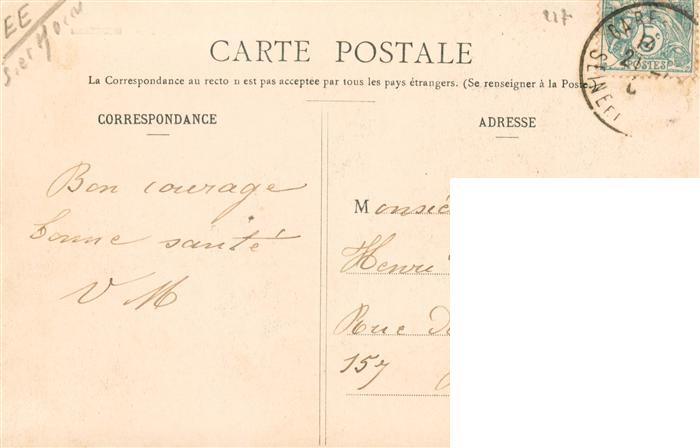 EE
217
CARTE POSTALE
La Correspondance au recto n est pas acceptée par tous les pays étrangers. (Se renseigner à la Poste.
CORRESPONDANCE
ADRESSE
Bon courage
bonne santé
V M
Monsie
Henri
Rue de
157
GARE
5
POSTES